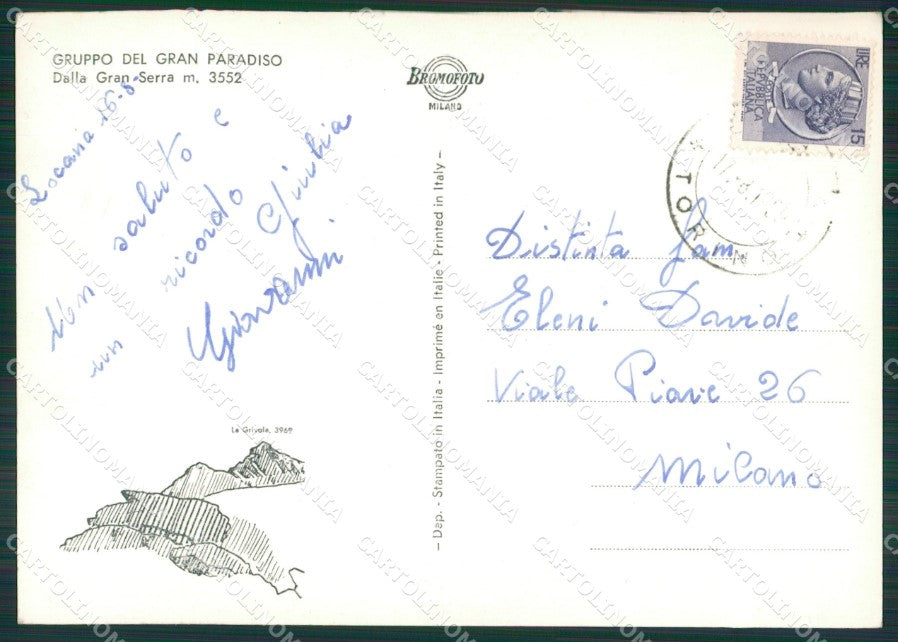 GRUPPO DEL GRAN PARADISO
Dalla Gran Serra m. 3552
Locana 16-8
Un saluto e
un ricordo
Giulia
Giovanni
Le Grivole, 3969
BROMOFOTO
MILANO
– Dep. - Stampato in Italia - Imprimé en Italie - Printed in Italy –
LIRE 15
REPVBBLICA
ITALIANA
TORINO
Distinta fam.
Eleni Davide
Viale Piave 26
Milano
CARTOLINOMANIA